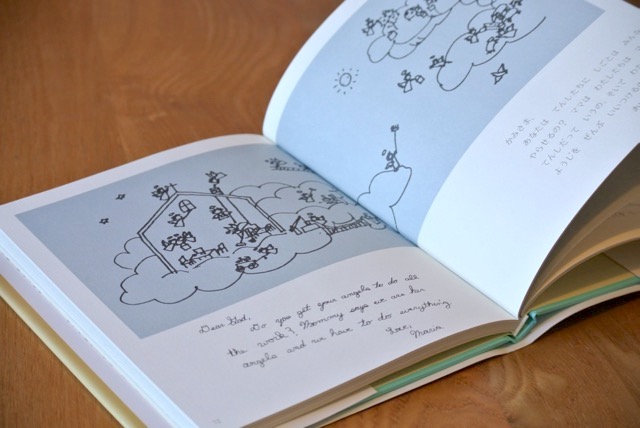 Dear God,
Do you get your angels to do all
the work? Mommy says we are her
angels and we have to do everything.
Love,
Maria
かみさま、
あなたは てんしたちに しごとは みんな
やらせるの? ママは わたしたちは
てんしだって いうの。そいで
ようじを ぜんぶ いいつけ